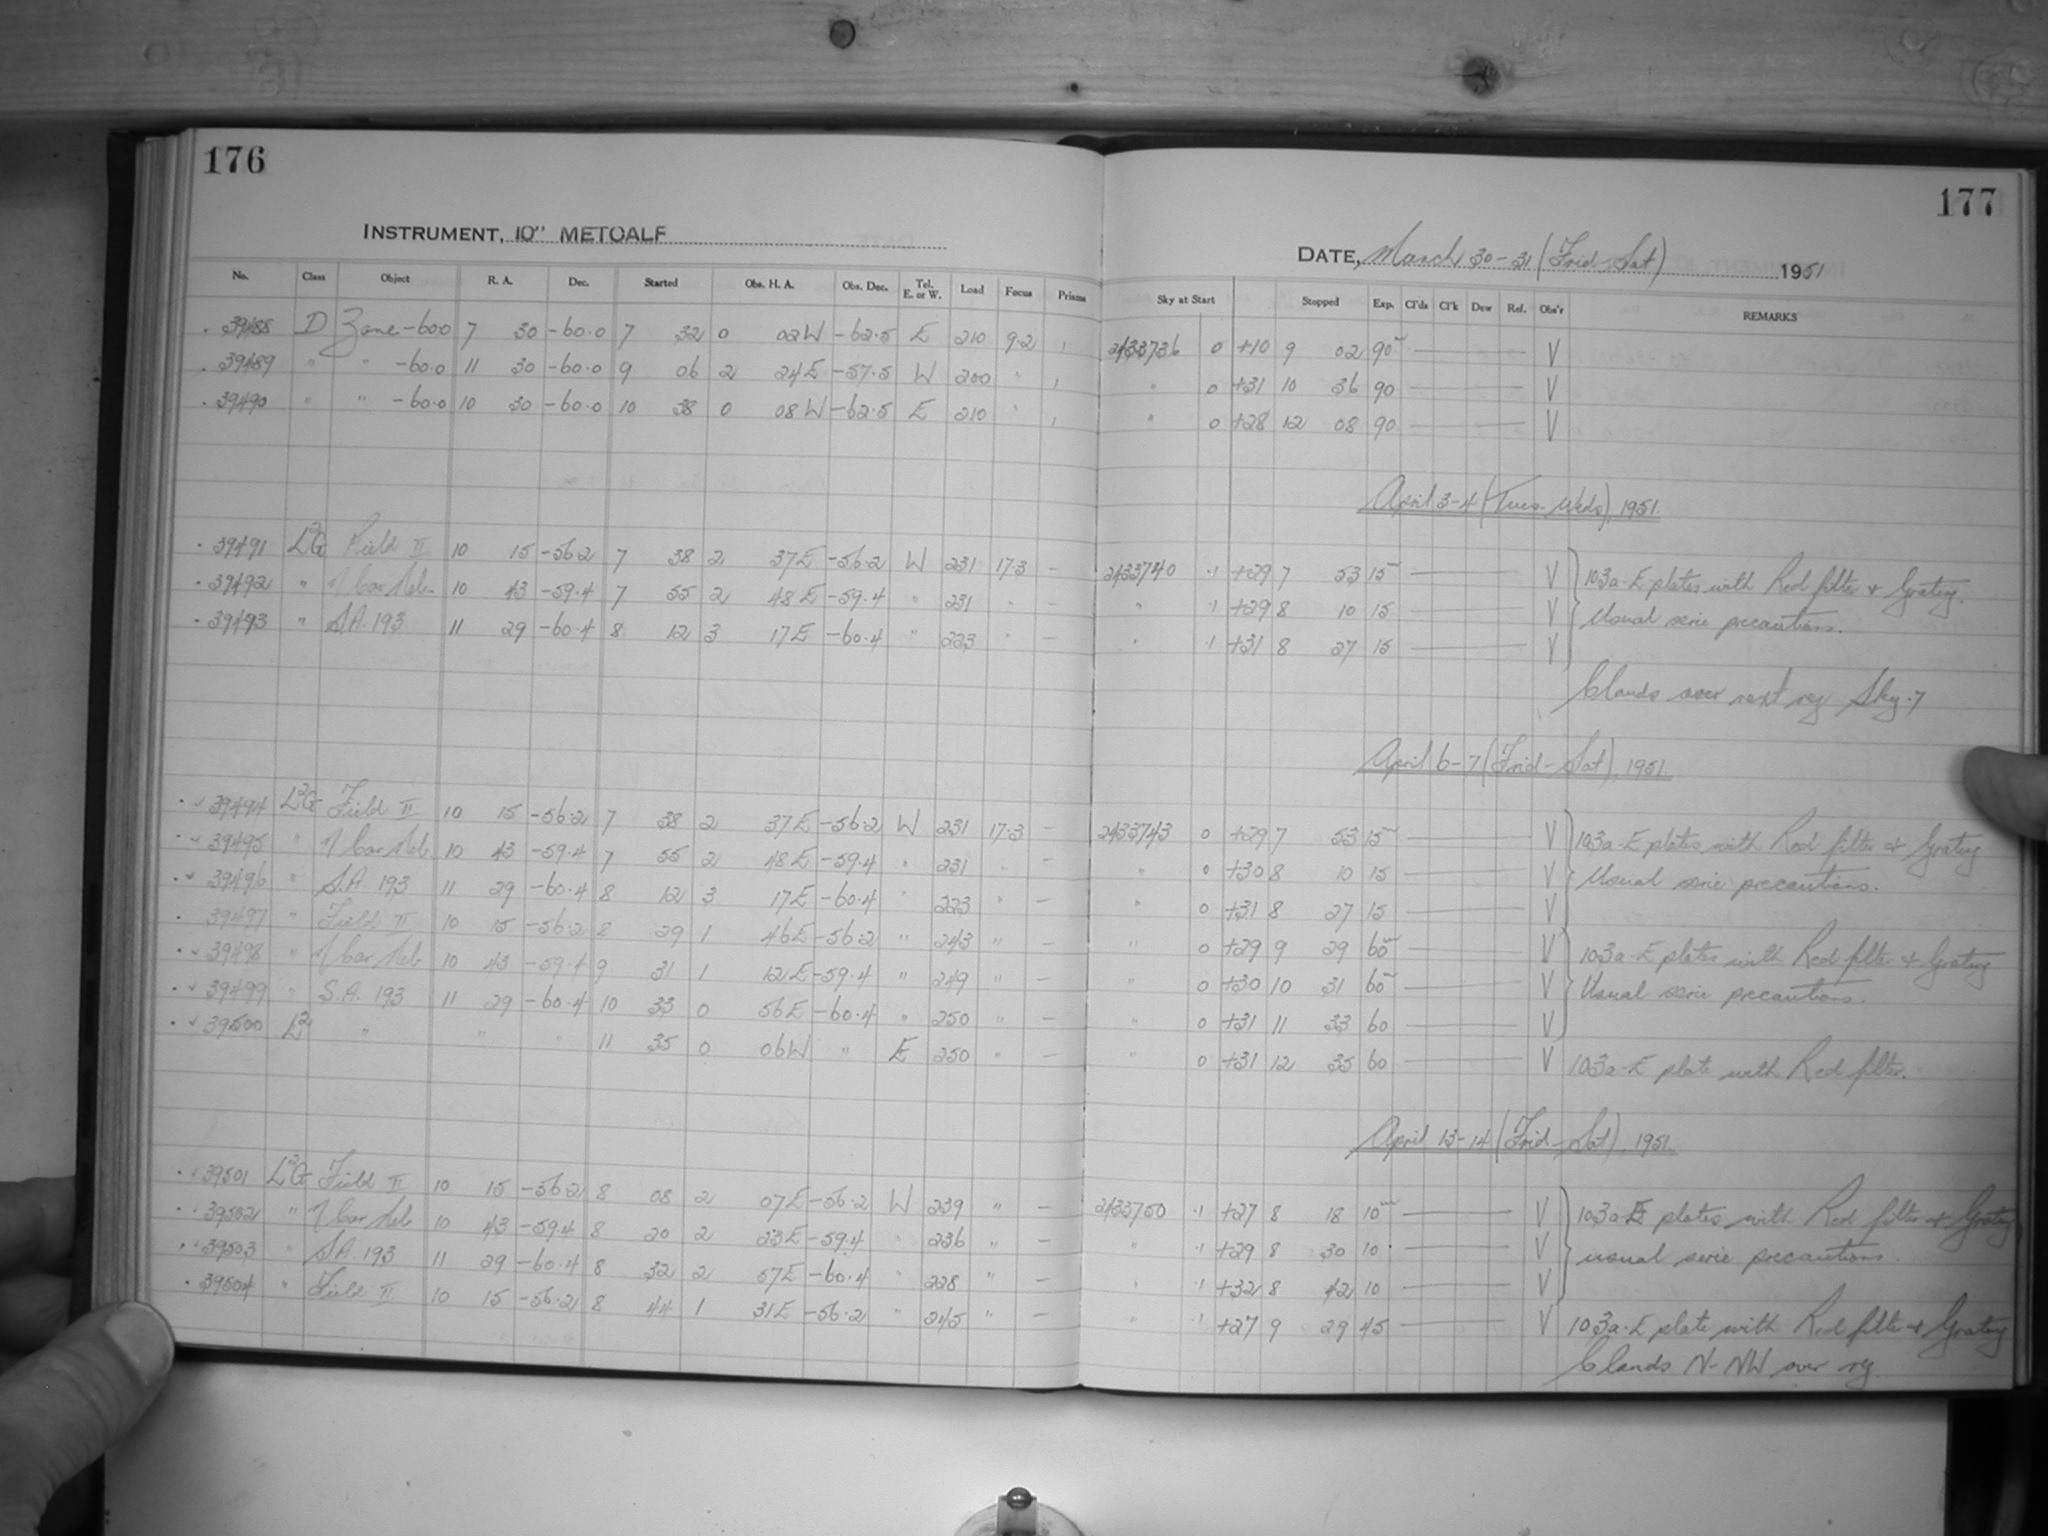 176
INSTRUMENT, 10" METCALF
No. Class Object R. A. Dec. Started Obs. H. A. Obs. Dec. Tel. E. or W. Load Focus Prisms
39488 D Zone -60.0 7 30 -60.0 7 32 0 02W -62.5 E 210 9.2 ,
39489 " " -60.0 11 30 -60.0 9 06 2 24E -57.5 W 200 " ,
39490 " " -60.0 10 30 -60.0 10 38 0 08W -62.5 E 210 " ,
39491 L²G Field II 10 15 -56.2 7 38 2 37E -56.2 W 231 17.3 —
39492 " η Car Neb. 10 43 -59.4 7 55 2 48E -59.4 " 231 " —
39493 " S.A. 193 11 29 -60.4 8 12 3 17E -60.4 " 223 " —
39494 L²G Field II 10 15 -56.2 7 38 2 37E -56.2 W 231 17.3 —
39495 " η Car Neb 10 43 -59.4 7 55 2 48E -59.4 " 231 " —
39496 " S.A. 193 11 29 -60.4 8 12 3 17E -60.4 " 223 " —
39497 " Field II 10 15 -56.2 8 29 1 46E -56.2 " 243 " —
39498 " η Car Neb 10 43 -59.4 9 31 1 12E -59.4 " 249 " —
39499 " S.A. 193 11 29 -60.4 10 33 0 56E -60.4 " 250 " —
39500 L² " " " 11 35 0 06W " E 250 " —
39501 L²G Field II 10 15 -56.2 8 08 2 07E -56.2 W 239 " —
39502 " η Car Neb 10 43 -59.4 8 20 2 23E -59.4 " 236 " —
39503 " S.A. 193 11 29 -60.4 8 32 2 57E -60.4 " 228 " —
39504 " Field II 10 15 -56.2 8 44 1 31E -56.2 " 245 " —
177
DATE, March 30-31 (Frid-Sat) 1951
Sky at Start Stopped Exp. Cl'ds Cl'k Dew Ref. Obs'r REMARKS
2433736 0 +10 9 02 90m V
" 0 +31 10 36 90 V
" 0 +28 12 08 90 V
April 3-4 (Tues-Weds), 1951.
2433740 .1 +29 7 53 15m V 103a-E plates with Red filter + Grating.
" .1 +29 8 10 15 V Usual serie precautions.
" .1 +31 8 27 15 V
Clouds over next reg Sky .7
April 6-7 (Frid-Sat), 1951.
2433743 0 +29 7 53 15m V 103a-E plates with Red filter + Grating
" 0 +30 8 10 15 V Usual serie precautions.
" 0 +31 8 27 15 V
" 0 +29 9 29 60m V 103a-E plates with Red filter + Grating
" 0 +30 10 31 60m V Usual serie precautions.
" 0 +31 11 33 60 V
" 0 +31 12 35 60 V 103a-E plate with Red filter.
April 13-14 (Frid-Sat), 1951.
2433750 .1 +27 8 18 10m V 103a-E plates with Red filter + Grating
" .1 +29 8 30 10 V usual serie precautions.
" .1 +32 8 42 10 V
" .1 +27 9 29 45 V 103a-E plate with Red filter + Grating
Clouds N-NW over reg.